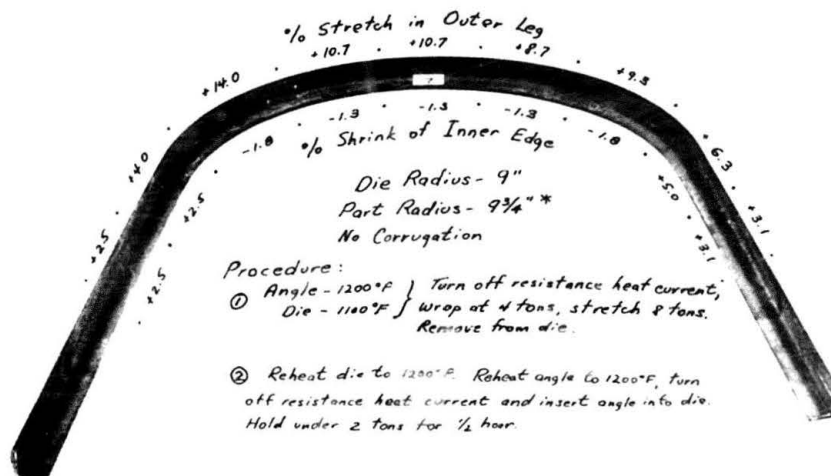 % Stretch in Outer Leg
+2.5 +4.0 +14.0 +10.7 +10.7 +8.7 +9.3 +6.3 +3.1
+2.5 +2.5 -1.8 -1.3 -1.3 -1.3 -1.8 +5.0 +3.1
% Shrink of Inner Edge
Die Radius - 9"
Part Radius - 9 3/4" *
No Corrugation
Procedure:
① Angle - 1200°F } Turn off resistance heat current,
Die - 1100°F wrap at 4 tons, stretch 8 tons.
Remove from die.
② Reheat die to 1200°F. Reheat angle to 1200°F, turn
off resistance heat current and insert angle into die.
Hold under 2 tons for 1/2 hour.